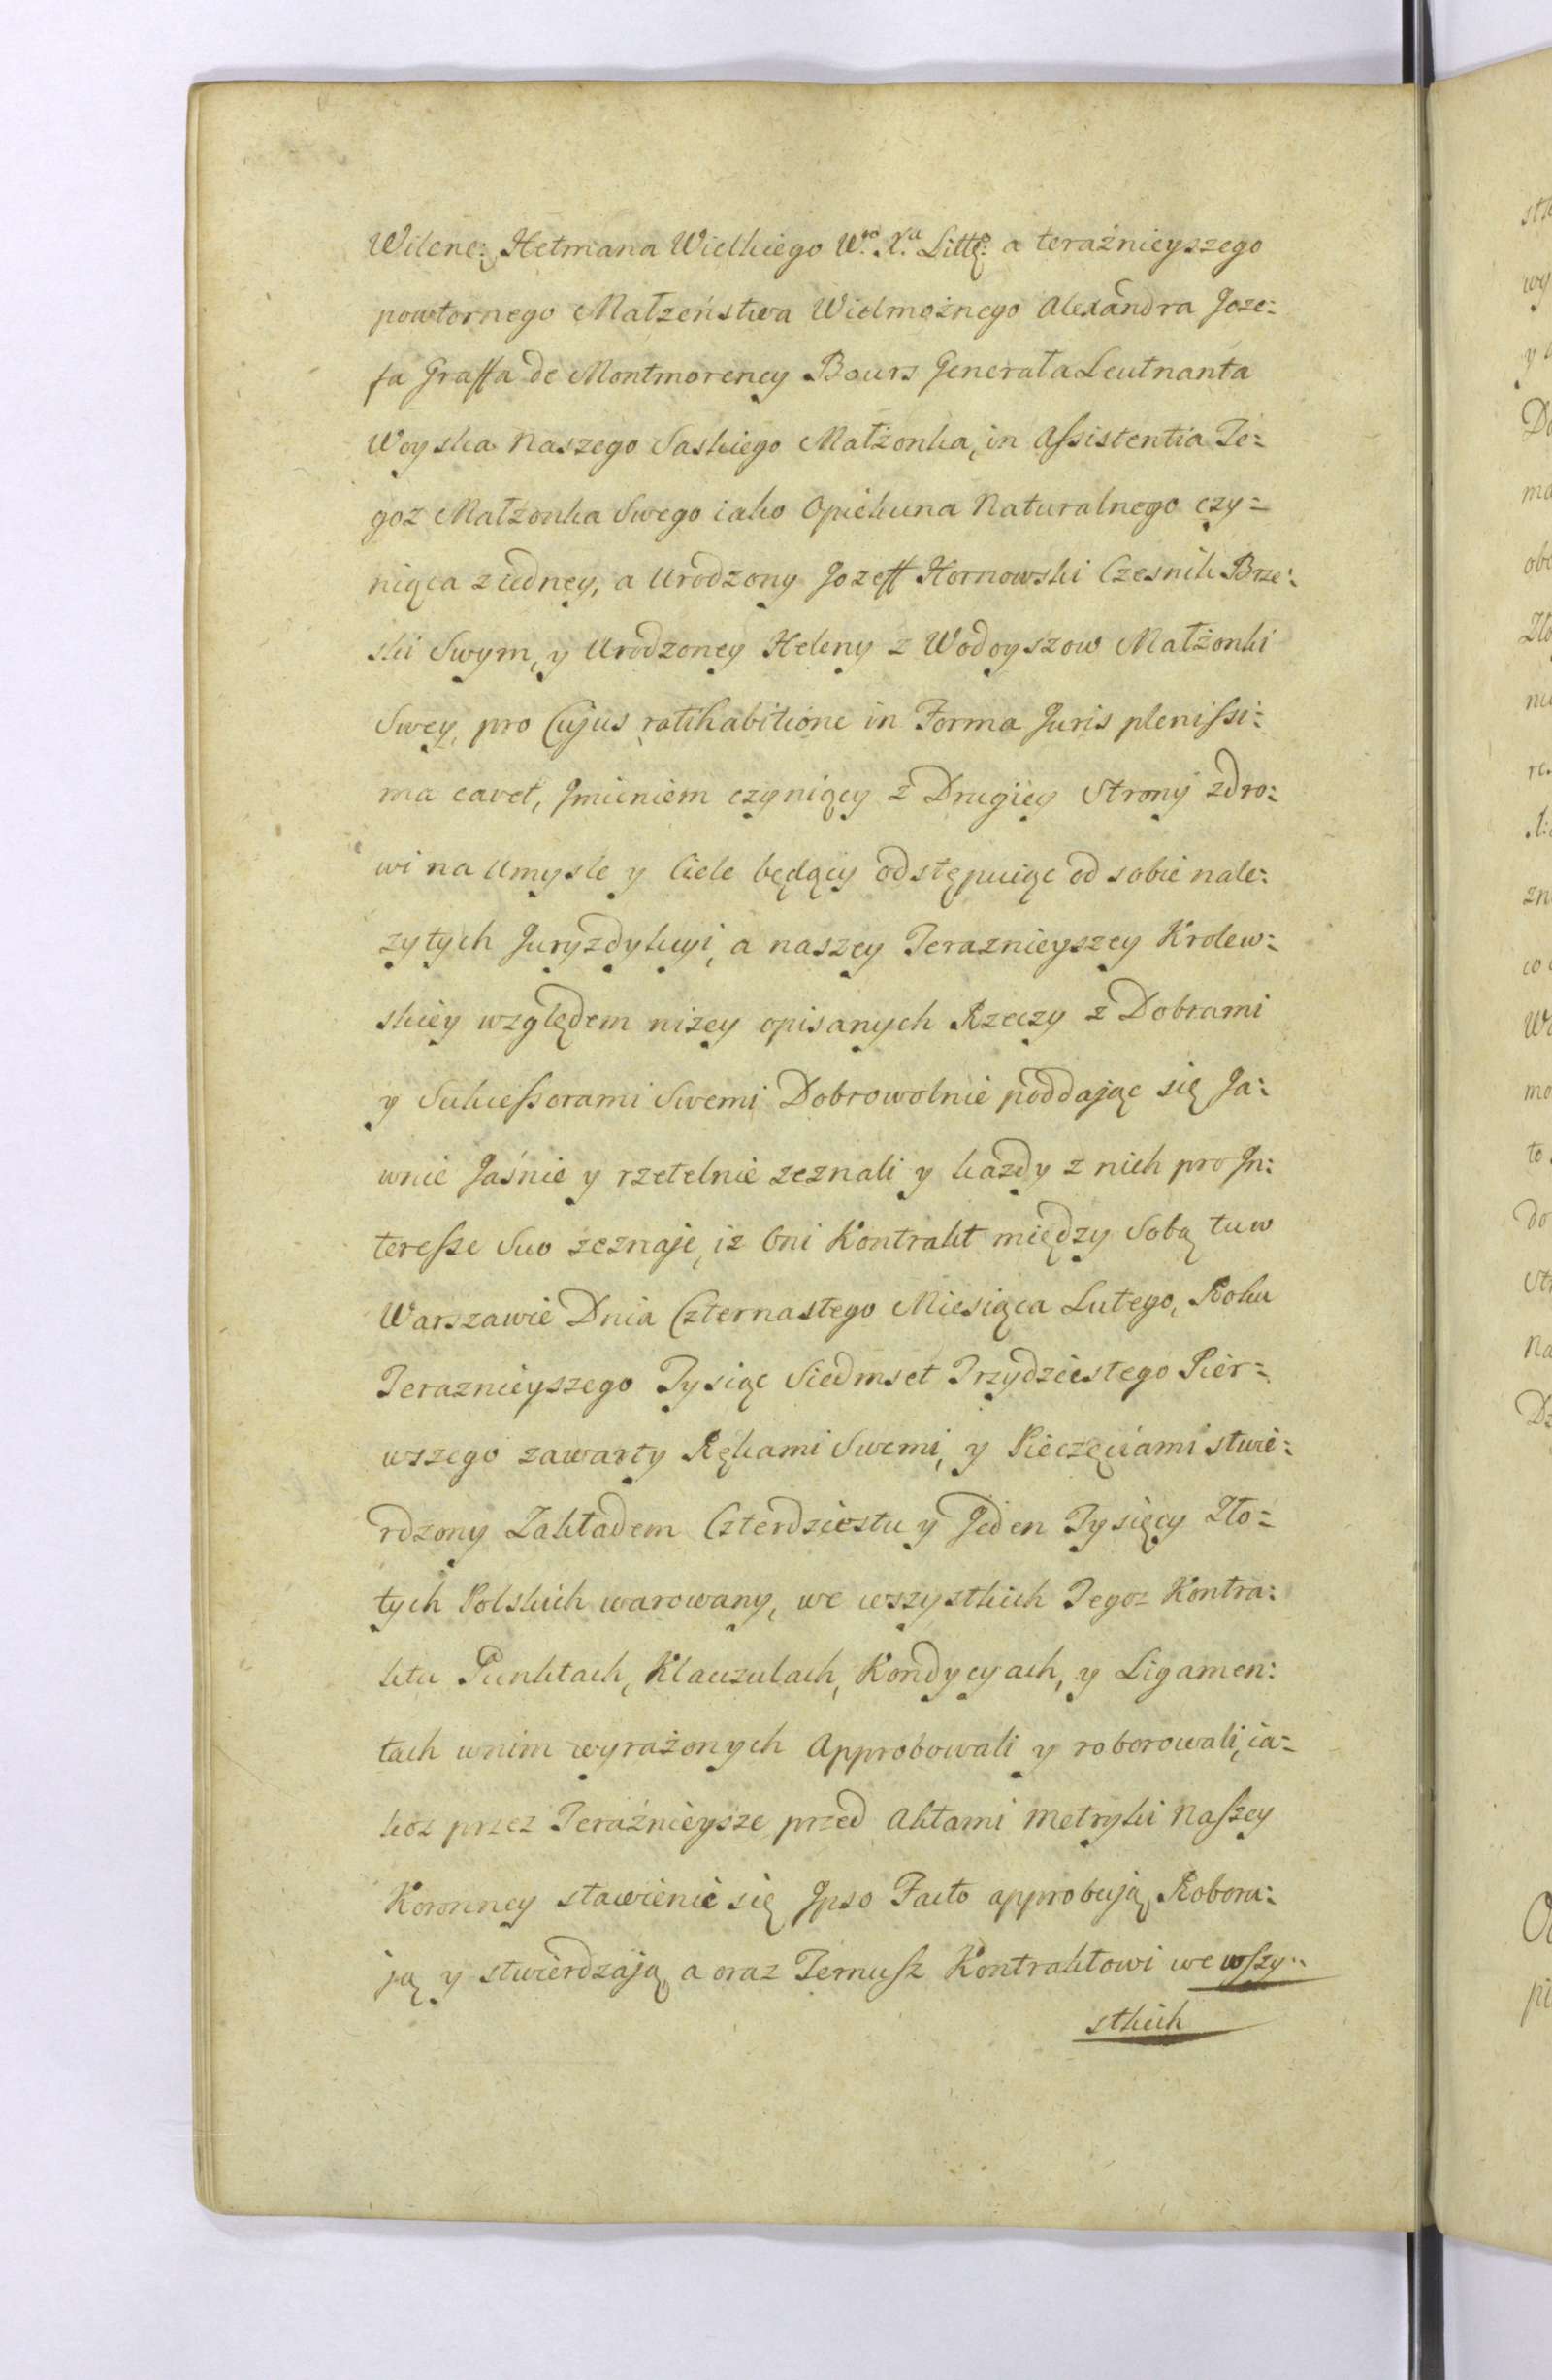 Wilene: Hetmana Wielkiego W.go X.a Litt: a teraźnieyszego
powtornego Małżeństwa Wielmożnego Alexandra Joze:
fa Graffa de Montmorency Bours Generała Leutnanta
Woyska Naszego Saskiego Małżonka, in Assistentia Te:
goż Małżonka Swego iako Opiekuna Naturalnego czy=
niąca z iedney, a Urodzony Jozeff Hornowski Czesnik Brze:
ski Swym, y Urodzoney Heleny z Wodoyszow Małżonki
Swey, pro Cujus ratihabitione in Forma Juris plenissi:
ma cavet, Jmieniem czyniący z Drugiey Strony zdro:
wi na Umysle y Ciele będący odstępuiąc od sobie nale:
zytych Juryzdykcyi, a naszey Teraznieyszey Krolew:
skiey względem niżey opisanych Rzeczy z Dobrami
y Sukcessorami Swemi Dobrowolnie poddając się Ja:
wnie Jaśnie y rzetelnie zeznali y kazdy z nich pro Jn:
teresse Suo zeznaje, iz Oni Kontrakt między Sobą tu w
Warszawie Dnia Czternastego Miesiąca Lutego, Roku
Teraznieyszego Tysiąc Siedmset Trzydziestego Pier=
wszego zawarty Rękami Swemi, y Pieczęciami stwie:
rdzony Zakładem Czterdziestu y Jeden Tysięcy Zło=
tych Polskich warowany, we wszystkich Tegoz Kontra:
ktu Punktach, Klauzulach, Kondycyach, y Ligamen:
tach w nim wyrażonych Approbowali y roborowali, ia=
koz przez Teraźnieysze przed Aktami Metryki Naszey
Koronney stawienie się Jpso Facto approbują, Roboru:
ją y stwierdzają, a oraz Temusz Kontraktowi we wszy:
stkich